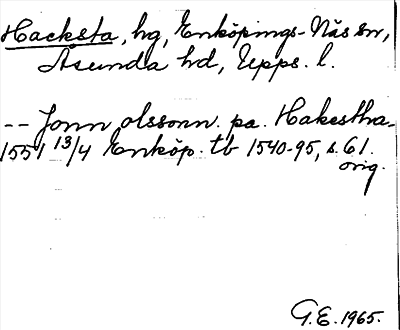 Hacksta, hg, Enköpings-Näs sn,
Åsunda hd, Upps. l.
-- Jonn olssonn. pa. Hakestha-
1551 13/4 Enköp. tb 1540-95, s. 61.
orig.
G.E. 1965.